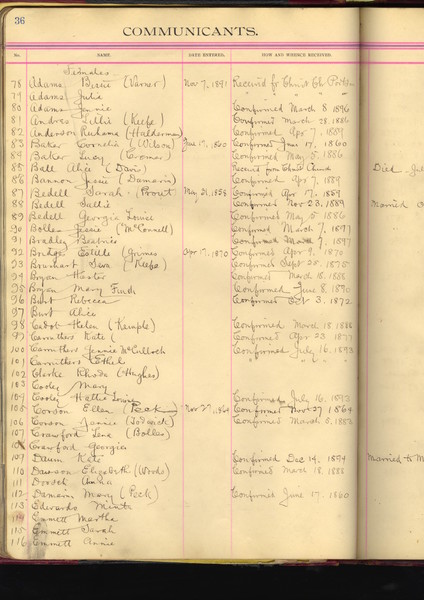 36
COMMUNICANTS.
No. NAME. DATE ENTERED. HOW AND WHENCE RECEIVED.
Females
78 Adams Bessie (Varner) Nov 7, 1891 Received fr Christ Ch
79 Adams Julia " "
80 Adams Jennie Confirmed March 8 1896
81 Andres Lillie (Keefe) Confirmed March 28, 1886
82 Anderson Ruhama (Halderman) Confirmed Apr 7, 1889
83 Baker Cornelia (Wilson) June 17, 1860 Confirmed June 17, 1860
84 Baker Lucy (Cromer) Confirmed May 5, 1886
85 Ball Alice (Davis) Received from Christ Church Died
86 Bannon Jessie (Damarin) Confirmed Apr 7, 1889
87 Bedell Sarah (Prout) May 21, 1856 Confirmed Apr 17, 1859
88 Bedell Sallie Confirmed Nov 23, 1889 Married
89 Bedell Georgia Louise Confirmed May 5 1886
90 Bolles Jessie (McConnell) Confirmed March 7, 1897
91 Bradley Beatrice Confirmed March 7, 1897
92 Bridges Estelle (Grimes Apr 17, 1870 Confirmed Apr 9, 1871
93 (Keefe) Confirmed Sept 28, 1875
94 Bryan Hester Confirmed March 18, 1888
95 Bryan Mary Finch Confirmed June 8, 1890
96 Burt Rebecca Confirmed Oct 3, 1872
97 Burt Alice
98 Cabot Helen (Kemple) Confirmed March 18 1888
99 Carnitters Kate ( Confirmed Apr 23, 1877
100 Carnitters Jeannie McCulloch Confirmed July 16, 1893
101 Carnitters Ethel " " "
102 Clarke Rhoda (Hughes)
103 Cooley Mary
104 Cooley Hattie Louise Confirmed July 16, 1893
105 Corson Ellen (Peck) Nov 27, 1864 Confirmed Nov 27 1864
106 Corson Jeannie Confirmed March 5, 1882
107 Crawford Lena (Bolles)
Crawford Georgia
109 Daum Kate Confirmed Dec 14, 1894 Married to
110 Dawson Elizabeth (Words) Confirmed March 18, 1888
111 Dorsch Anna
112 Damarin Mary (Peck) Confirmed June 17, 1860
113 Edwards Minta
114 Emmett Martha
115 Emmett Sarah
116 Emmett Annie